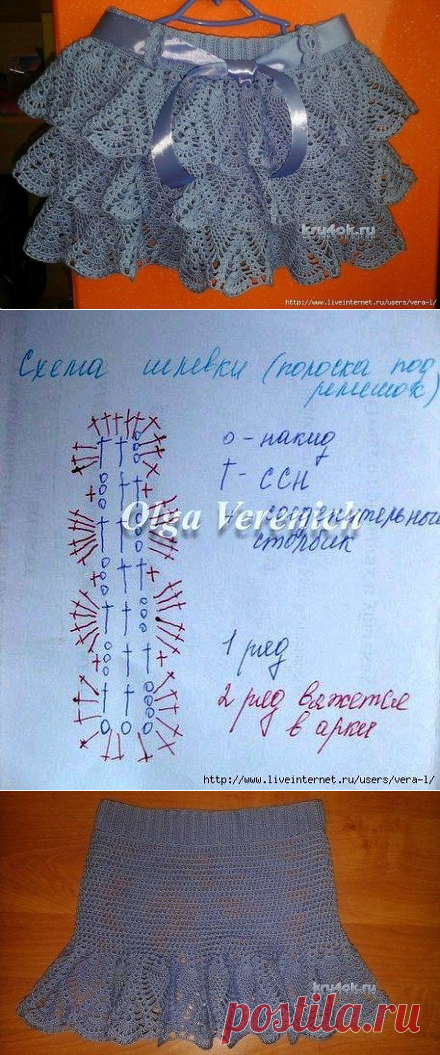 kru4ok.ru
http://www.liveinternet.ru/users/vera-1/
Схема шлевки (полоска под
ремешок)
o - накид
† - ССН
Olga Verenich
соединительный
столбик
1 ряд
2 ряд вяжется
в арки
http://www.liveinternet.ru/users/vera-1/
kru4ok.ru
postila.ru